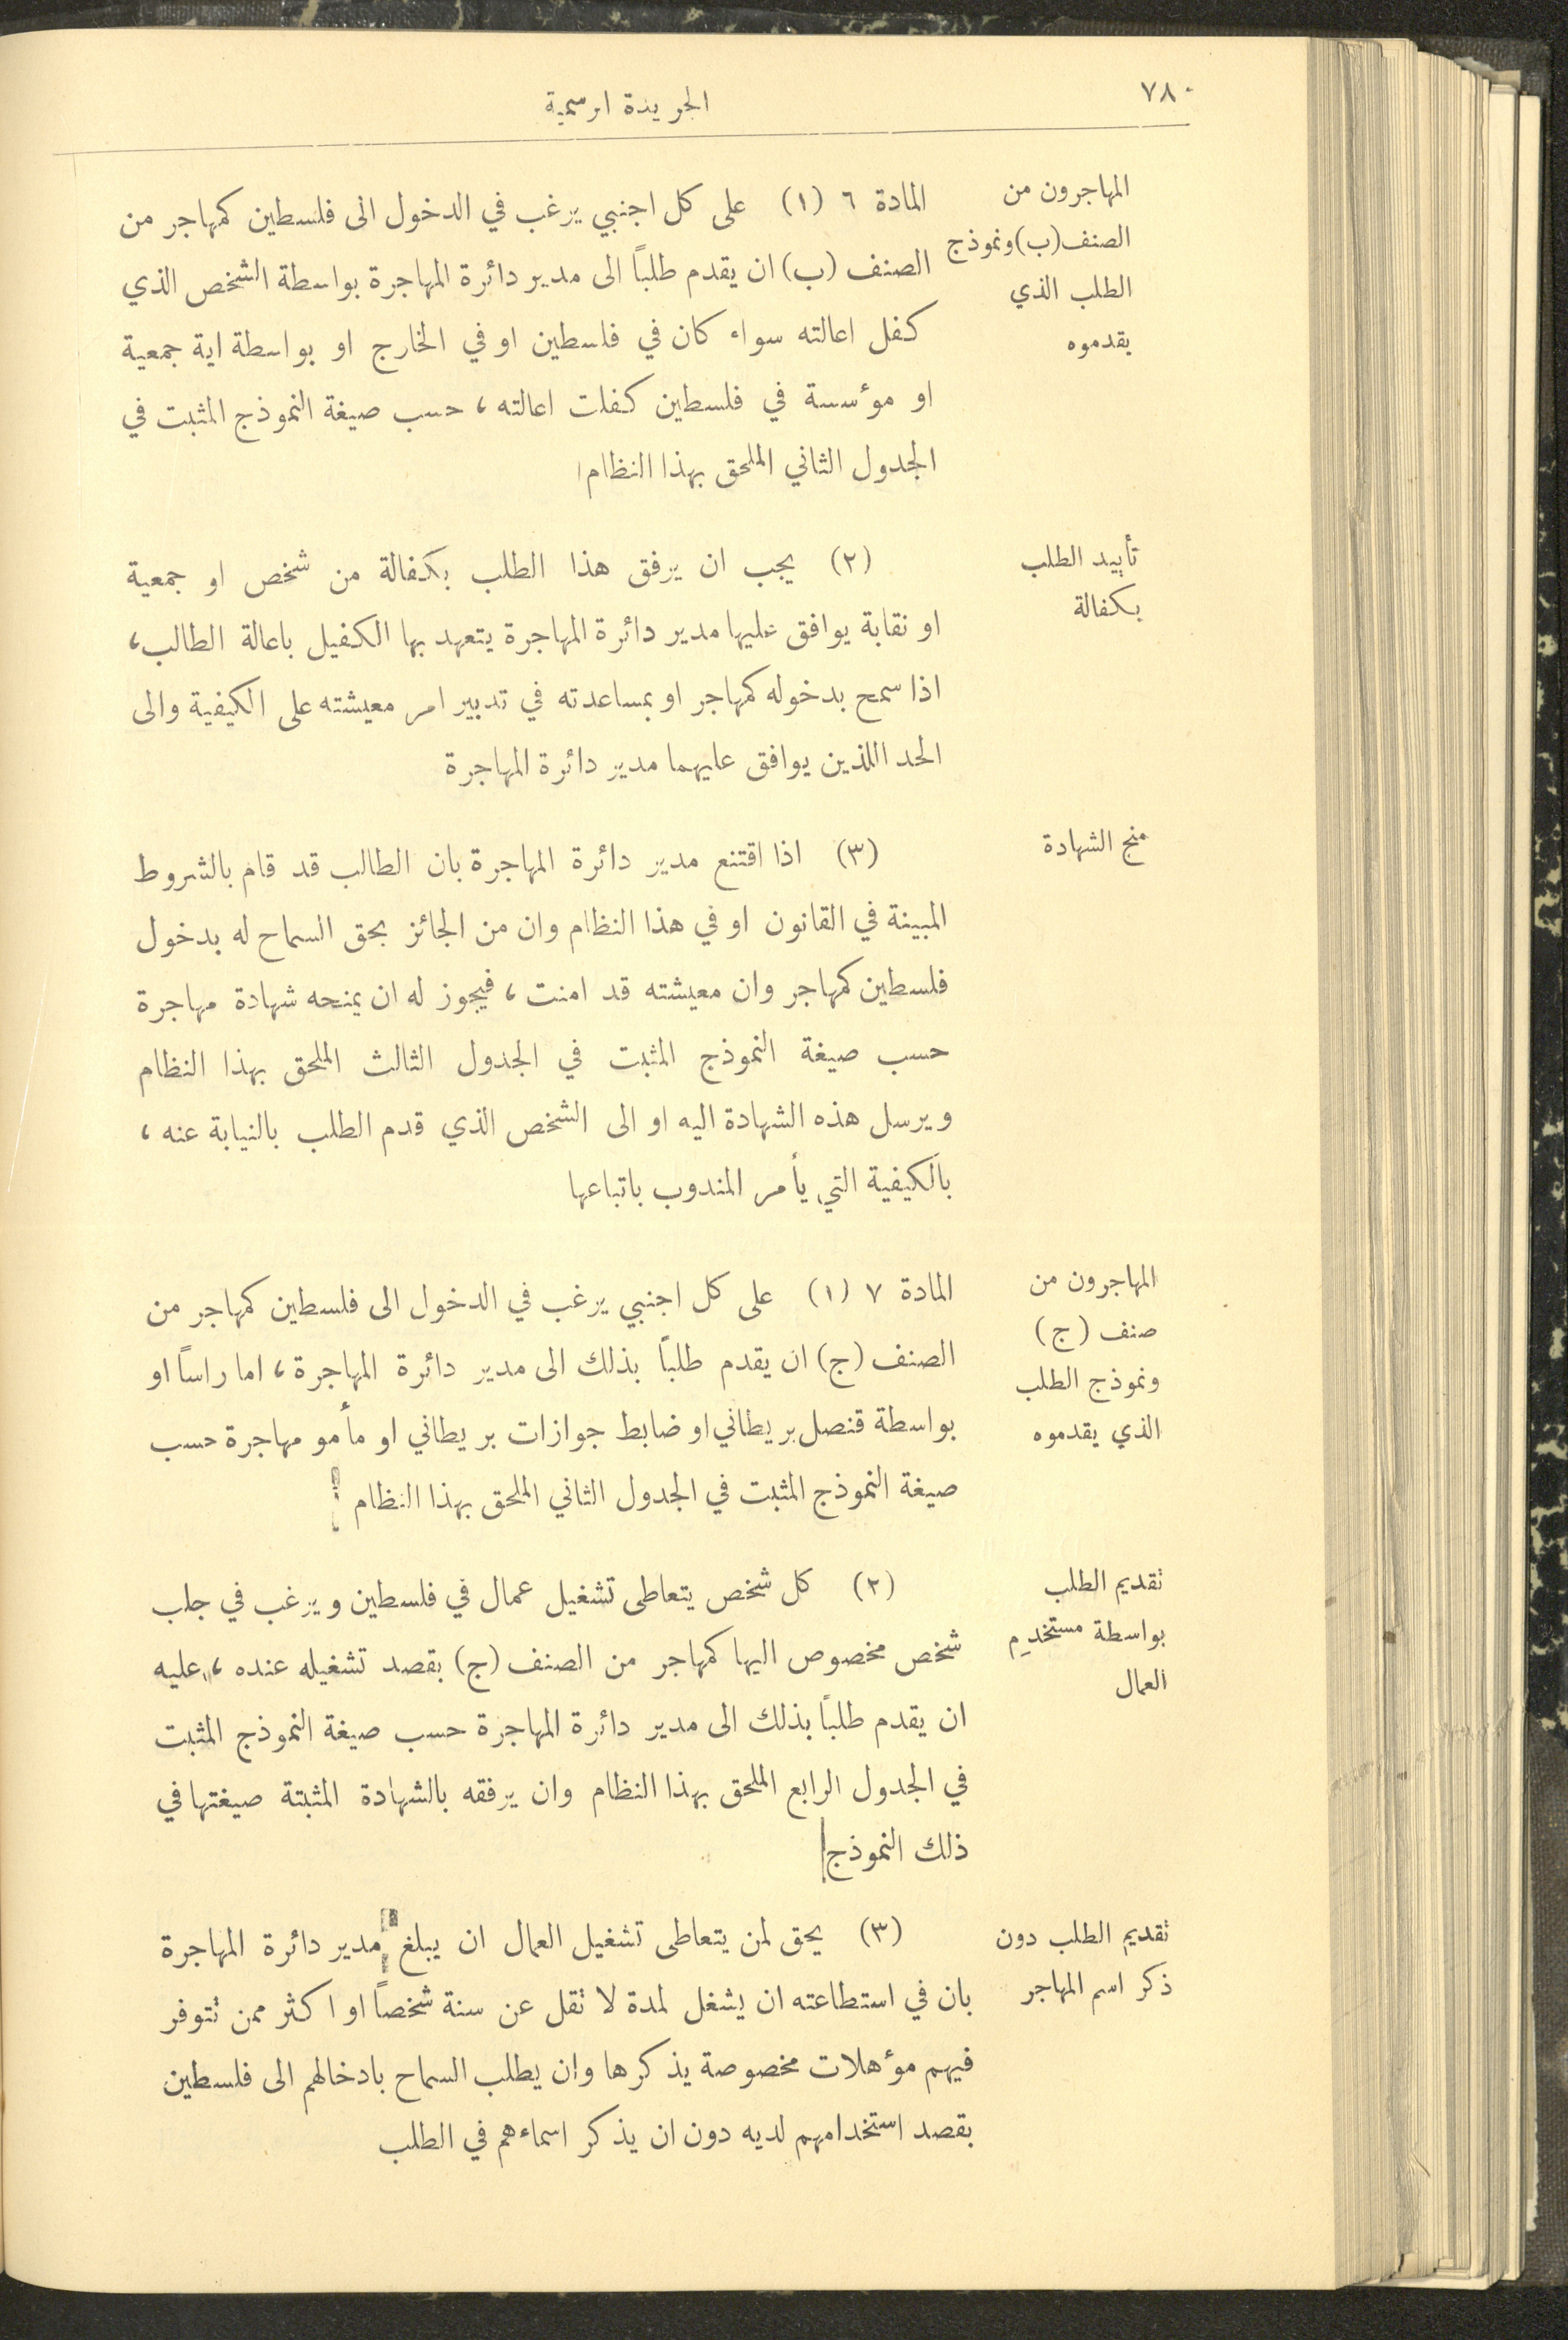 ٧٨٠
الجريدة ارسمية
المهاجرون من
الصنف (ب) ونموذج
الطلب الذي
يقدموه
المادة ٦ (١) على كل اجنبي يرغب في الدخول الى فلسطين كمهاجر من
الصنف (ب) ان يقدم طلباً الى مدير دائرة المهاجرة بواسطة الشخص الذي
كفل اعالته سواء كان في فلسطين او في الخارج او بواسطة اية جمعية
او مؤسسة في فلسطين كفلت اعالته، حسب صيغة النموذج المثبت في
الجدول الثاني الملحق بهذا النظام
تأييد الطلب
بكفالة
(٢) يجب ان يرفق هذا الطلب بكفالة من شخص او جمعية
او نقابة يوافق عليها مدير دائرة المهاجرة يتعهد بها الكفيل باعالة الطالب،
اذا سمح بدخوله كمهاجر او بمساعدته في تدبير امر معيشته على الكيفية والى
الحد اللذين يوافق عليهما مدير دائرة المهاجرة
منح الشهادة
(٣) اذا اقتنع مدير دائرة المهاجرة بان الطالب قد قام بالشروط
المبينة في القانون او في هذا النظام وان من الجائز بحق السماح له بدخول
فلسطين كمهاجر وان معيشته قد امنت، فيجوز له ان يمنحه شهادة مهاجرة
حسب صيغة النموذج المثبت في الجدول الثالث الملحق بهذا النظام
ويرسل هذه الشهادة اليه او الى الشخص الذي قدم الطلب بالنيابة عنه،
بالكيفية التي يأمر المندوب باتباعها
المهاجرون من
صنف (ج)
ونموذج الطلب
الذي يقدموه
المادة ٧ (١) على كل اجنبي يرغب في الدخول الى فلسطين كمهاجر من
الصنف (ج) ان يقدم طلباً بذلك الى مدير دائرة المهاجرة، اما راساً او
بواسطة قنصل بريطاني او ضابط جوازات بريطاني او مأمو مهاجرة حسب
صيغة النموذج المثبت في الجدول الثاني الملحق بهذا النظام
تقديم الطلب
بواسطة مستخدم
العمال
(٢) كل شخص يتعاطى تشغيل عمال في فلسطين ويرغب في جلب
شخص مخصوص اليها كمهاجر من الصنف (ج) بقصد تشغيله عنده، عليه
ان يقدم طلباً بذلك الى مدير دائرة المهاجرة حسب صيغة النموذج المثبت
في الجدول الرابع الملحق بهذا النظام وان يرفقه بالشهادة المثبتة صيغتها في
ذلك النموذج
تقديم الطلب دون
ذكر اسم المهاجر
(٣) يحق لمن يتعاطى تشغيل العمال ان يبلغ مدير دائرة المهاجرة
بان في استطاعته ان يشغل لمدة لا تقل عن سنة شخصاً او اكثر ممن تتوفر
فيهم مؤهلات مخصوصة يذكرها وان يطلب السماح بادخالهم الى فلسطين
بقصد استخدامهم لديه دون ان يذكر اسماءهم في الطلب